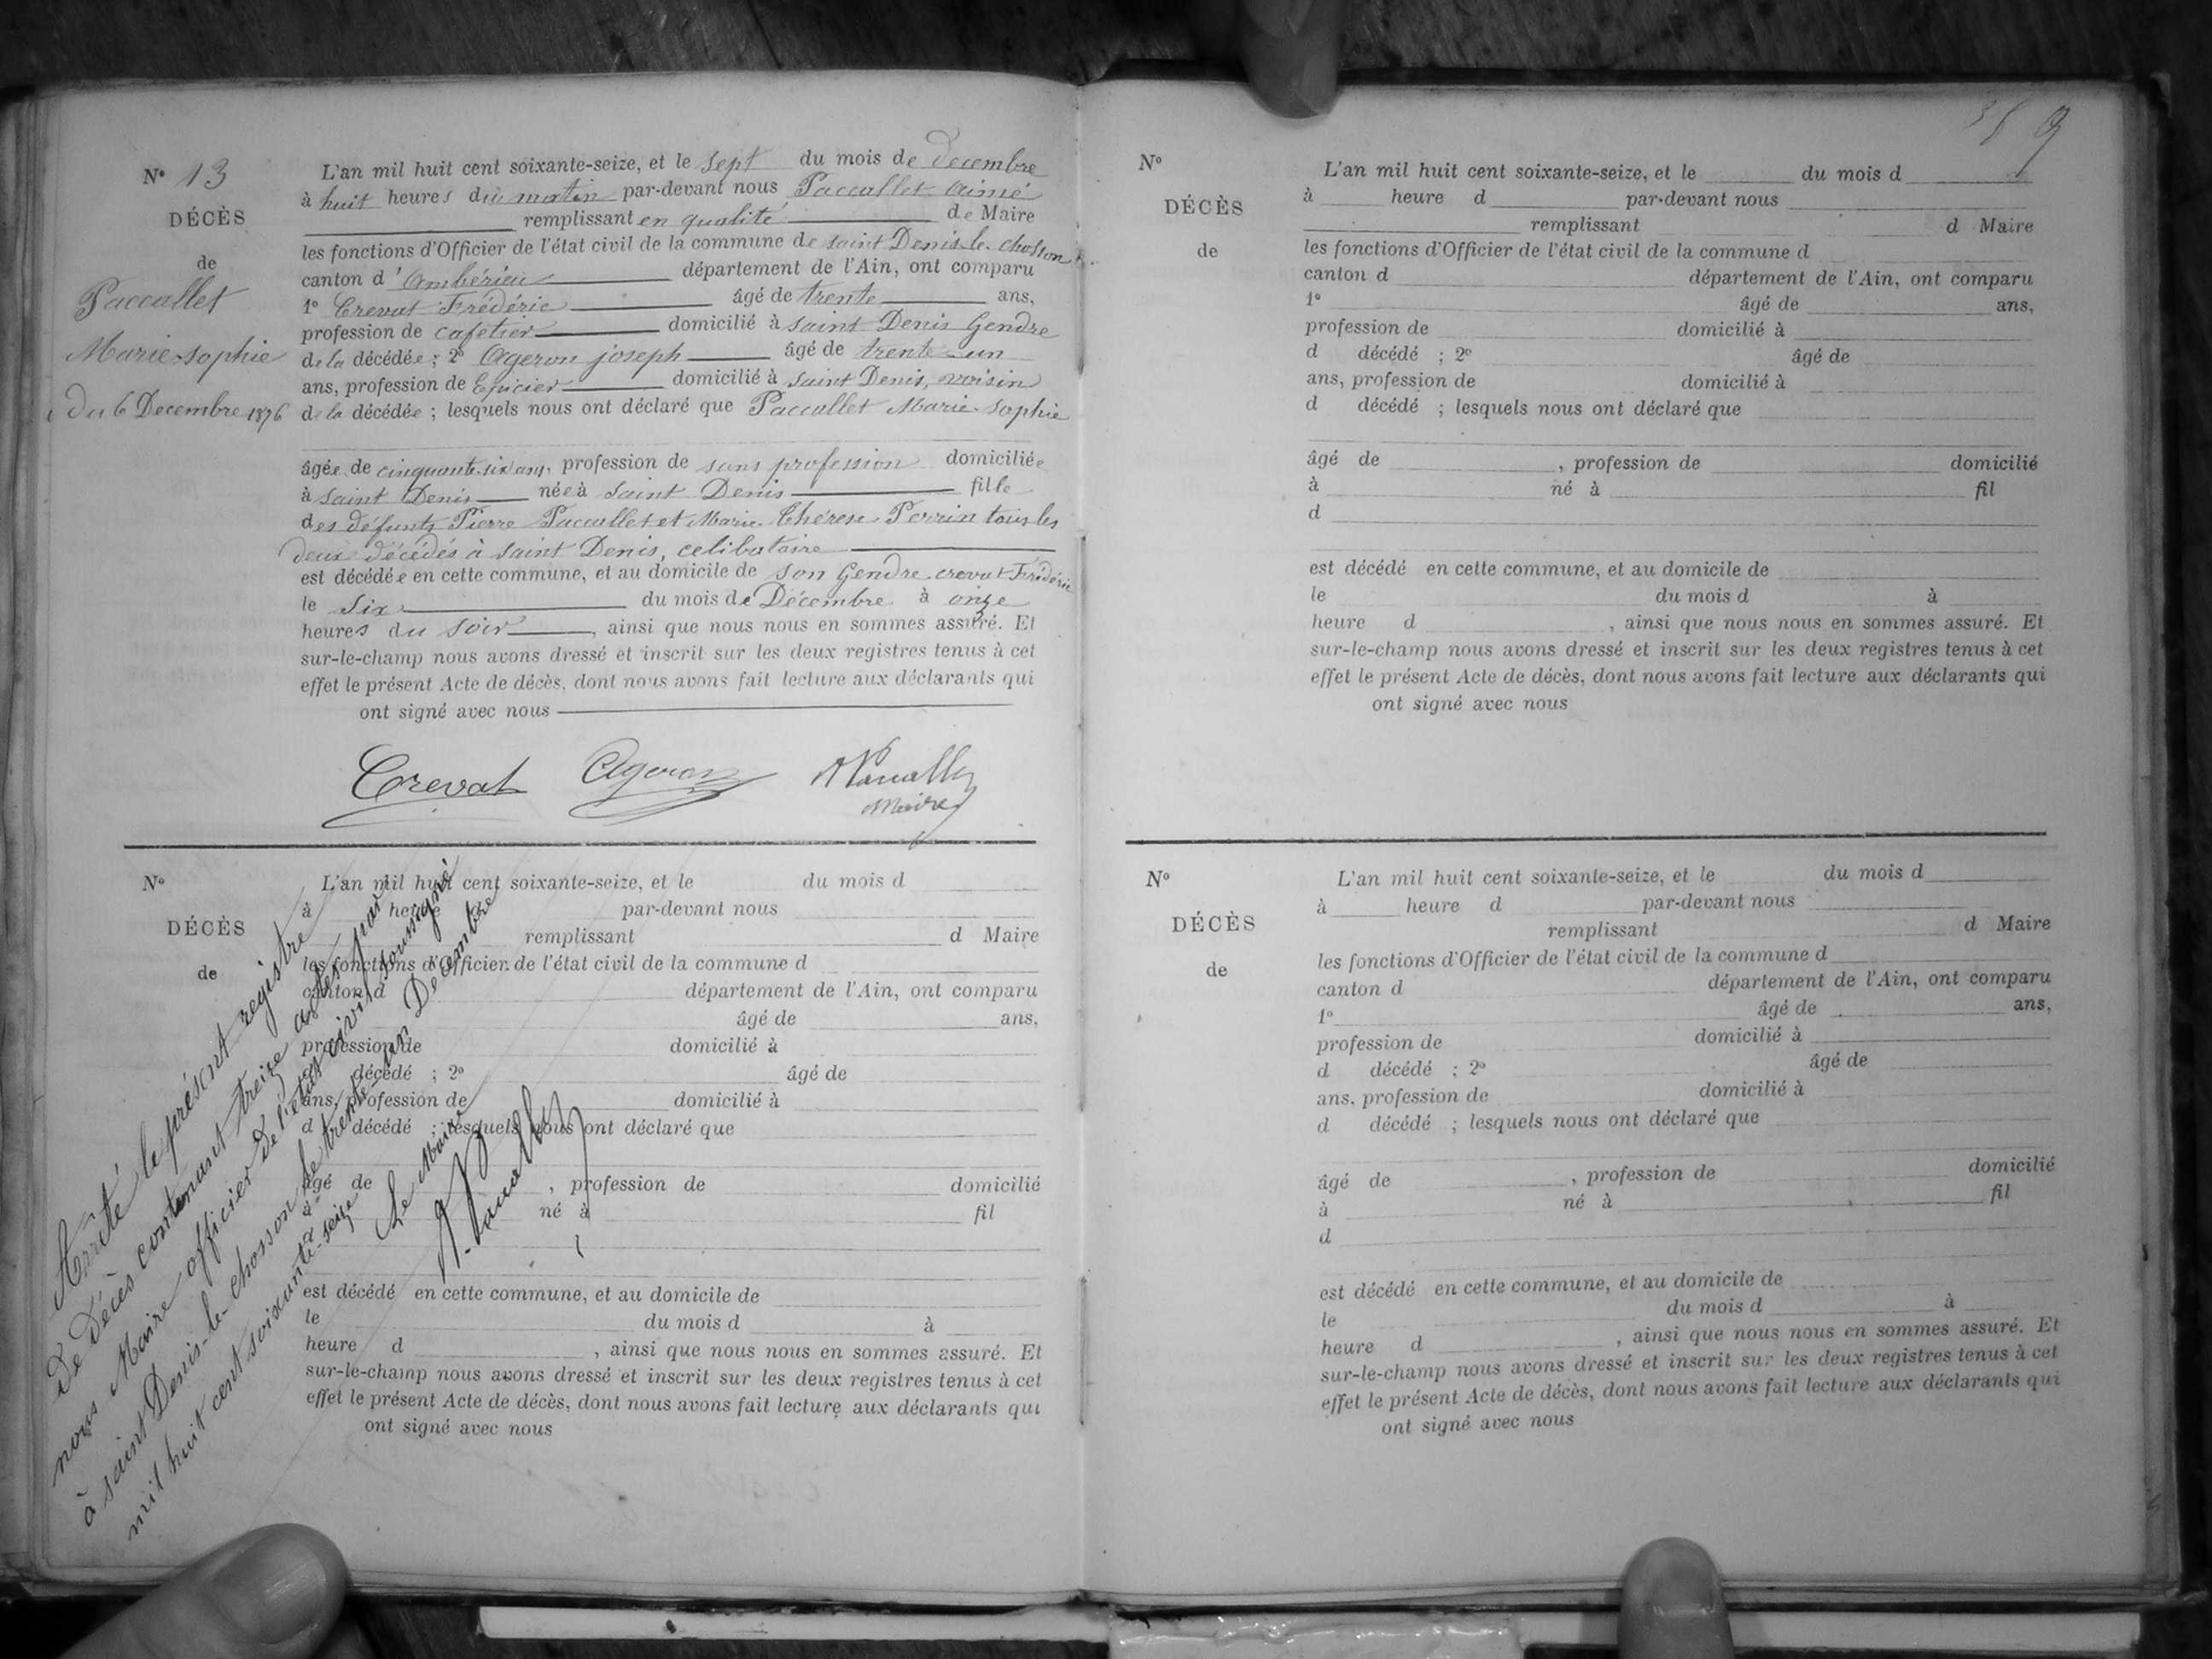 N° 13
DÉCÈS
de
Paccallet
Marie-sophie
Du 6 Decembre 1876
L'an mil huit cent soixante-seize, et le sept du mois de Decembre
à huit heures du matin par-devant nous Paccallet Aimé
remplissant en qualité de Maire
les fonctions d'Officier de l'état civil de la commune de saint Denis-le-chosson
canton d'Ambérieu département de l'Ain, ont comparu
1° Crevat Frédéric âgé de trente ans,
profession de cafetier domicilié à saint Denis Gendre
de la décédée ; 2° Ageron joseph âgé de trente-un
ans, profession de Epicier domicilié à saint Denis, voisin
de la décédée ; lesquels nous ont déclaré que Paccallet Marie-sophie
âgée de cinquante-six ans, profession de sans profession domiciliée
à saint Denis née à saint Denis fille
des défunts Pierre Paccallet et Marie-Thérèse Perrin tous les
deux décédés à saint Denis, celibataire
est décédée en cette commune, et au domicile de son Gendre crevat Frédéric
le six du mois de Décembre à onze
heures du soir, ainsi que nous nous en sommes assuré. Et
sur-le-champ nous avons dressé et inscrit sur les deux registres tenus à cet
effet le présent Acte de décès, dont nous avons fait lecture aux déclarants qui
ont signé avec nous
Crevat Ageron A Paccallet
Maire
N°
DÉCÈS
de
L'an mil huit cent soixante-seize, et le du mois d
à heure d par-devant nous
remplissant d Maire
les fonctions d'Officier de l'état civil de la commune d
canton d département de l'Ain, ont comparu
âgé de ans,
profession de domicilié à
d décédé ; 2° âgé de
ans, profession de domicilié à
d décédé ; lesquels nous ont déclaré que
âgé de , profession de domicilié
à né à fil
d
est décédé en cette commune, et au domicile de
le du mois d à
heure d , ainsi que nous nous en sommes assuré. Et
sur-le-champ nous avons dressé et inscrit sur les deux registres tenus à cet
effet le présent Acte de décès, dont nous avons fait lecture aux déclarants qui
ont signé avec nous
Arrêté le présent registre
De Décès contenant treize actes par
nous Maire officier de l'état civil soussigné
à saint Denis-le-chosson le trente-un Decembre
mil huit cent soixante-seize
Le Maire
A. Paccallet
9
N°
DÉCÈS
de
L'an mil huit cent soixante-seize, et le du mois d
à heure d par-devant nous
remplissant d Maire
les fonctions d'Officier de l'état civil de la commune d
canton d département de l'Ain, ont comparu
1° âgé de ans,
profession de domicilié à
d décédé ; 2° âgé de
ans, profession de domicilié à
d décédé ; lesquels nous ont déclaré que
âgé de , profession de domicilié
à né à fil
d
est décédé en cette commune, et au domicile de
le du mois d à
heure d , ainsi que nous nous en sommes assuré. Et
sur-le-champ nous avons dressé et inscrit sur les deux registres tenus à cet
effet le présent Acte de décès, dont nous avons fait lecture aux déclarants qui
ont signé avec nous
N°
DÉCÈS
de
L'an mil huit cent soixante-seize, et le du mois d
à heure d par-devant nous
remplissant d Maire
les fonctions d'Officier de l'état civil de la commune d
canton d département de l'Ain, ont comparu
1° âgé de ans,
profession de domicilié à
d décédé ; 2° âgé de
ans, profession de domicilié à
d décédé ; lesquels nous ont déclaré que
âgé de , profession de domicilié
à né à fil
d
est décédé en cette commune, et au domicile de
le du mois d à
heure d , ainsi que nous nous en sommes assuré. Et
sur-le-champ nous avons dressé et inscrit sur les deux registres tenus à cet
effet le présent Acte de décès, dont nous avons fait lecture aux déclarants qui
ont signé avec nous